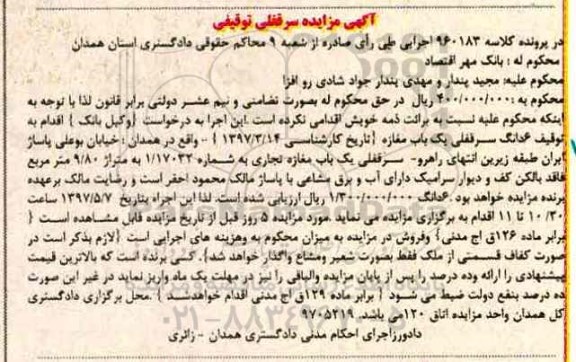 آگهی مزایده سرقفلی توقیفی
در پرونده کلاسه ۹۶۰۱۸۳ اجرایی طی رأی صادره از شعبه ۹ محاکم حقوقی دادگستری استان همدان
محکوم له : بانک مهر اقتصاد
محکوم علیه: مجید پندار و مهدی پندار جواد شادی رو افزا
محکوم به :۴۰۰/۰۰۰/۰۰۰ ریال در حق محکوم له بصورت تضامنی و نیم عشر دولتی برابر قانون لذا با توجه به
اینکه محکوم علیه نسبت به برائت ذمه خویش اقدامی نکرده است .این اجرا به درخواست {وکیل بانک } اقدام به
توقیف ۶دانگ سرقفلی یک باب مغازه {تاریخ کارشناسی ۱۳۹۷/۳/۱۴ } - واقع در همدان : خیابان بوعلی پاساژ
ایران طبقه زیرین انتهای راهرو- سرقفلی یک باب مغازه تجاری به شماره ۱/۱۷۰۳۲ به متراژ ۹/۸۰ متر مربع
فاقد بالکن کف و دیوار سرامیک دارای آب و برق مشاعی با پاساژ مالک محمود احقر است و رضایت مالک برعهده
برنده مزایده خواهد بود .۶دانگ ۱/۳۰۰/۰۰۰/۰۰۰ ریال ارزیابی شده است. لذا این اجراء بتاریخ ۱۳۹۷/۵/۷ ساعت
۱۰/۳۰ تا ۱۱ اقدام به برگزاری مزایده می نماید .مورد مزایده ۵ روز قبل از تاریخ مزایده قابل مشاهده است {
برابر ماده ۱۲۶ق اج مدنی} وفروش در مزایده به میزان محکوم به وهزینه های اجرایی است {لازم بذکر است در
صورت کفاف قسمتی از ملک فقط بصورت شعیر ومشاع واگذار خواهد شد}. کسی برنده است که بالاترین قیمت
پیشنهادی را ارائه وده درصد را پس از پایان مزایده والباقی را نیز در مهلت یک ماه واریز نماید در غیر این صورت
ده درصد بنفع دولت ضبط می شود { برابر ماده ۱۲۹ق اج مدنی اقدام خواهدشد } .محل برگزاری دادگستری
کل همدان واحد مزایده اتاق ۱۲۰می باشد. ۹۷۰۵۲۱۹
دادورزاجرای احکام مدنی دادگستری همدان - زائری